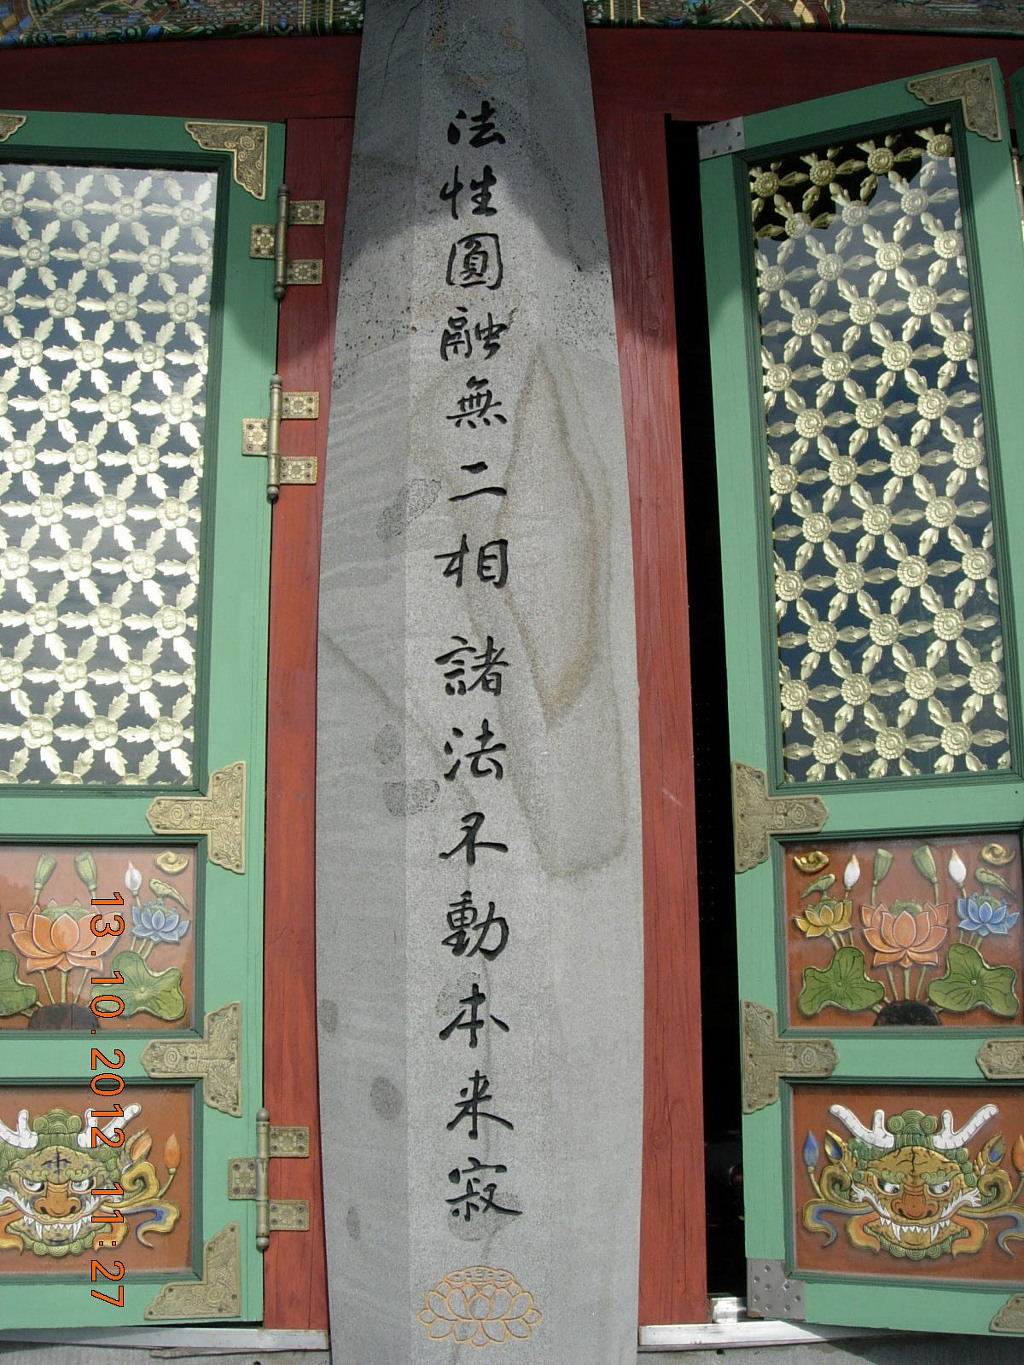 法性圓融無二相 諸法不動本来寂
13.10.2012 11:27